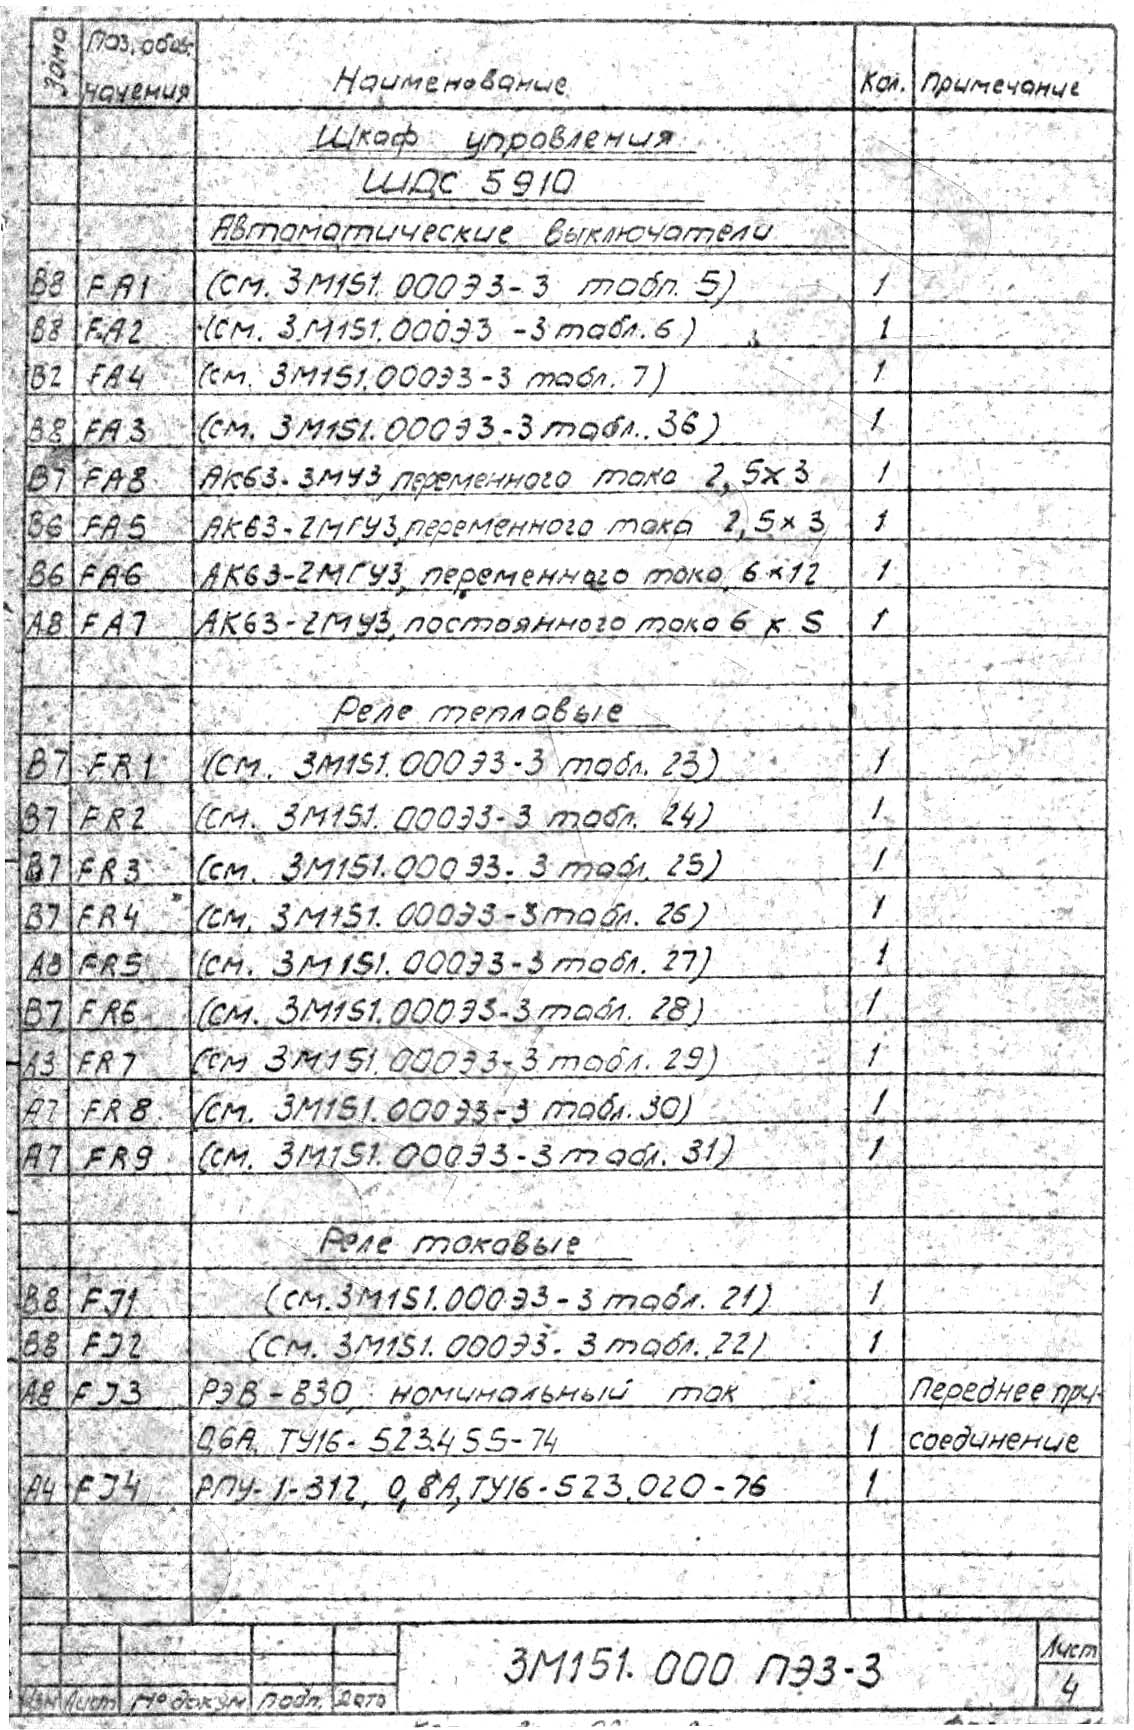 Зона Поз. обоз- Наименование Кол. Примечание
начения
Шкаф управления
ШДС 5910
Автоматические выключатели
В8 FA1 (см. 3М151.000Э3-3 табл. 5) 1
В8 FA2 (см. 3М151.000Э3-3 табл. 6) 1
В2 FA4 (см. 3М151.000Э3-3 табл. 7) 1
В8 FA3 (см. 3М151.000Э3-3 табл. 36) 1
В7 FA8 АК63-3МУ3, переменного тока 2,5х3 1
В6 FA5 АК63-2МГУ3, переменного тока 2,5х3 1
В6 FA6 АК63-2МГУ3, переменного тока, 6х12 1
А8 FA7 АК63-2МУ3, постоянного тока 6х5 1
Реле тепловые
В7 FR1 (см. 3М151.000Э3-3 табл. 23) 1
В7 FR2 (см. 3М151.000Э3-3 табл. 24) 1
В7 FR3 (см. 3М151.000Э3-3 табл. 25) 1
В7 FR4 (см. 3М151.000Э3-3 табл. 26) 1
FR5 (см. 3М151.000Э3-3 табл. 27) 1
В7 FR6 (см. 3М151.000Э3-3 табл. 28) 1
А3 FR7 (см 3М151.000Э3-3 табл. 29) 1
А7 FR8 (см. 3М151.000Э3-3 табл. 30) 1
А7 FR9 (см. 3М151.000Э3-3 табл. 31) 1
Реле токовые
В8 FJ1 (см. 3М151.000Э3-3 табл. 21) 1
В8 FJ2 (см. 3М151.000Э3-3 табл. 22) 1
А8 FJ3 РЭВ-830, номинальный ток Переднее при-
0,6А, ТУ16-523.455-74 1 соединение
А4 FJ4 РПУ-1-312, 0,8А, ТУ16-523.020-76 1
3М151.000 ПЭ3-3
Лист
4
Изм Лист № докум Подп. Дата